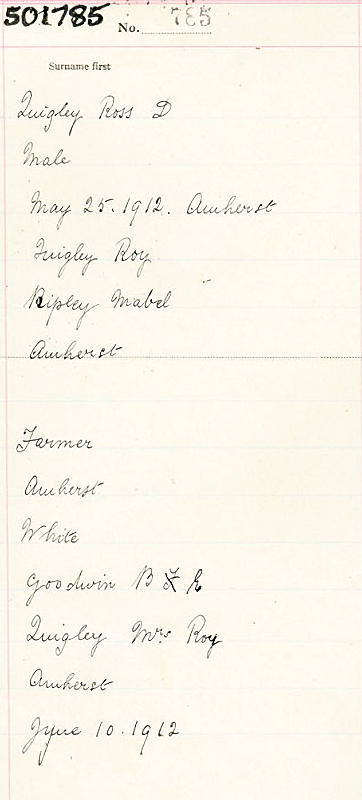 501785
No. 785
Surname first
Quigley Ross D
Male
May 25. 1912. Amherst
Quigley Roy
Ripley Mabel
Amherst
Farmer
Amherst
White
Goodwin B & E
Quigley Mrs Roy
Amherst
June 10. 1912